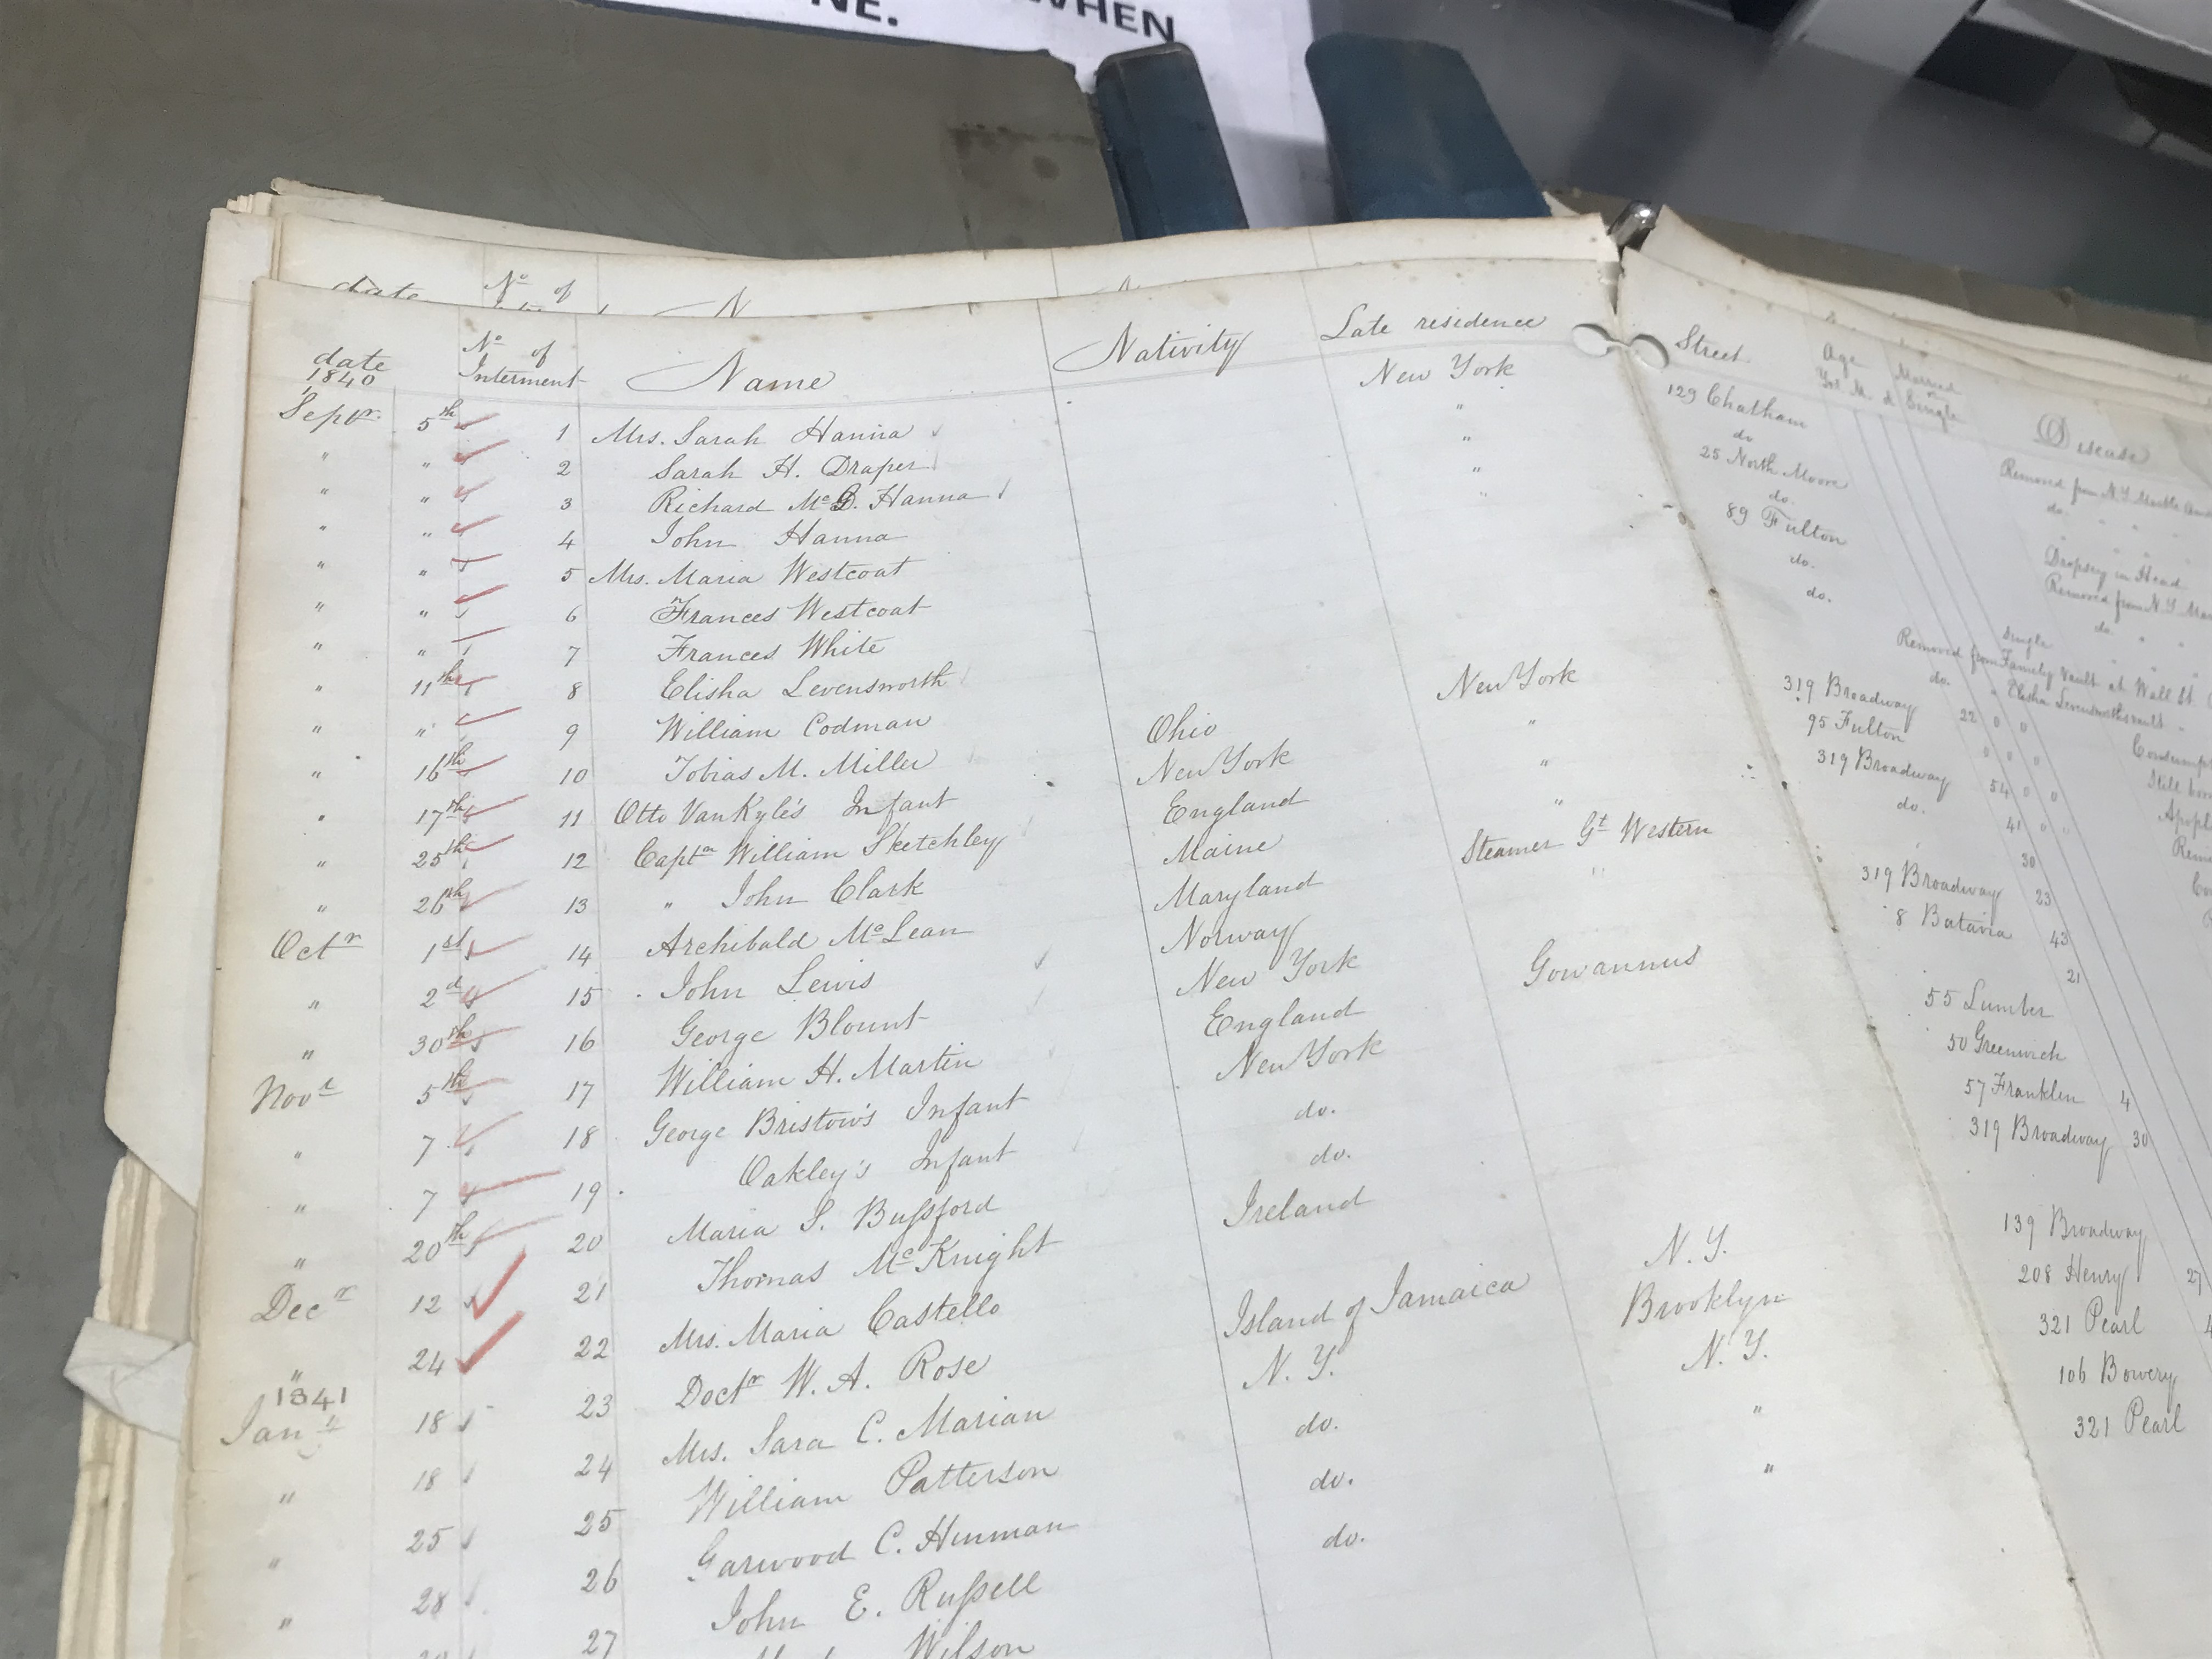 NE.
WHEN
date No of N
date 1840 No of Interment Name Nativity Late residence Street Age Married or Single Disease
Septr. 5th 1 Mrs. Sarah Hanna New York 129 Chatham
" " 2 Sarah H. Draper " do
" " 3 Richard McD. Hanna " 25 North Moore
" " 4 John Hanna " do. Dropsy in Head
" " 5 Mrs. Maria Westcoat " 89 Fulton
" " 6 Frances Westcoat do.
" " 7 Frances White do.
" 11th 8 Elisha Levensworth Removed from Family Vault at Wall St.
" " 9 William Codman do.
" 16th 10 Tobias M. Miller Ohio New York 319 Broadway 22 0 0
" 17th 11 Otto VanKyle's Infant New York " 95 Fulton 0 0
" 25th 12 Captn William Sketchley England " 319 Broadway 54 0 0
" 26th 13 " John Clark Maine " do. 41 0
Octr 1st 14 Archibald McLean Maryland Steamer Gt Western 30
" 2d 15 John Lewis Norway " 319 Broadway 23
" 30th 16 George Blount New York 8 Batavia 43
Novr 5th 17 William H. Martin England Gowannus 21
" 7 18 George Bristow's Infant New York 55 Lumber
" 7 19 Oakley's Infant do. 50 Greenwich
" 20th 20 Maria S. Bussford do. 57 Franklin 4
Decr 12 21 Thomas McKnight Ireland 319 Broadway 30
" 24 22 Mrs. Maria Castello Island of Jamaica N. Y. 139 Broadway
1841
Jany 18 23 Doctr W. A. Rose N. Y. Brooklyn 208 Henry 27
" 18 24 Mrs. Sara C. Marian do. N. Y. 321 Pearl
" 25 25 William Patterson do. " 106 Bowery
" 28 26 Garwood C. Hinman do. " 321 Pearl
27 John E. Russell
Wilson